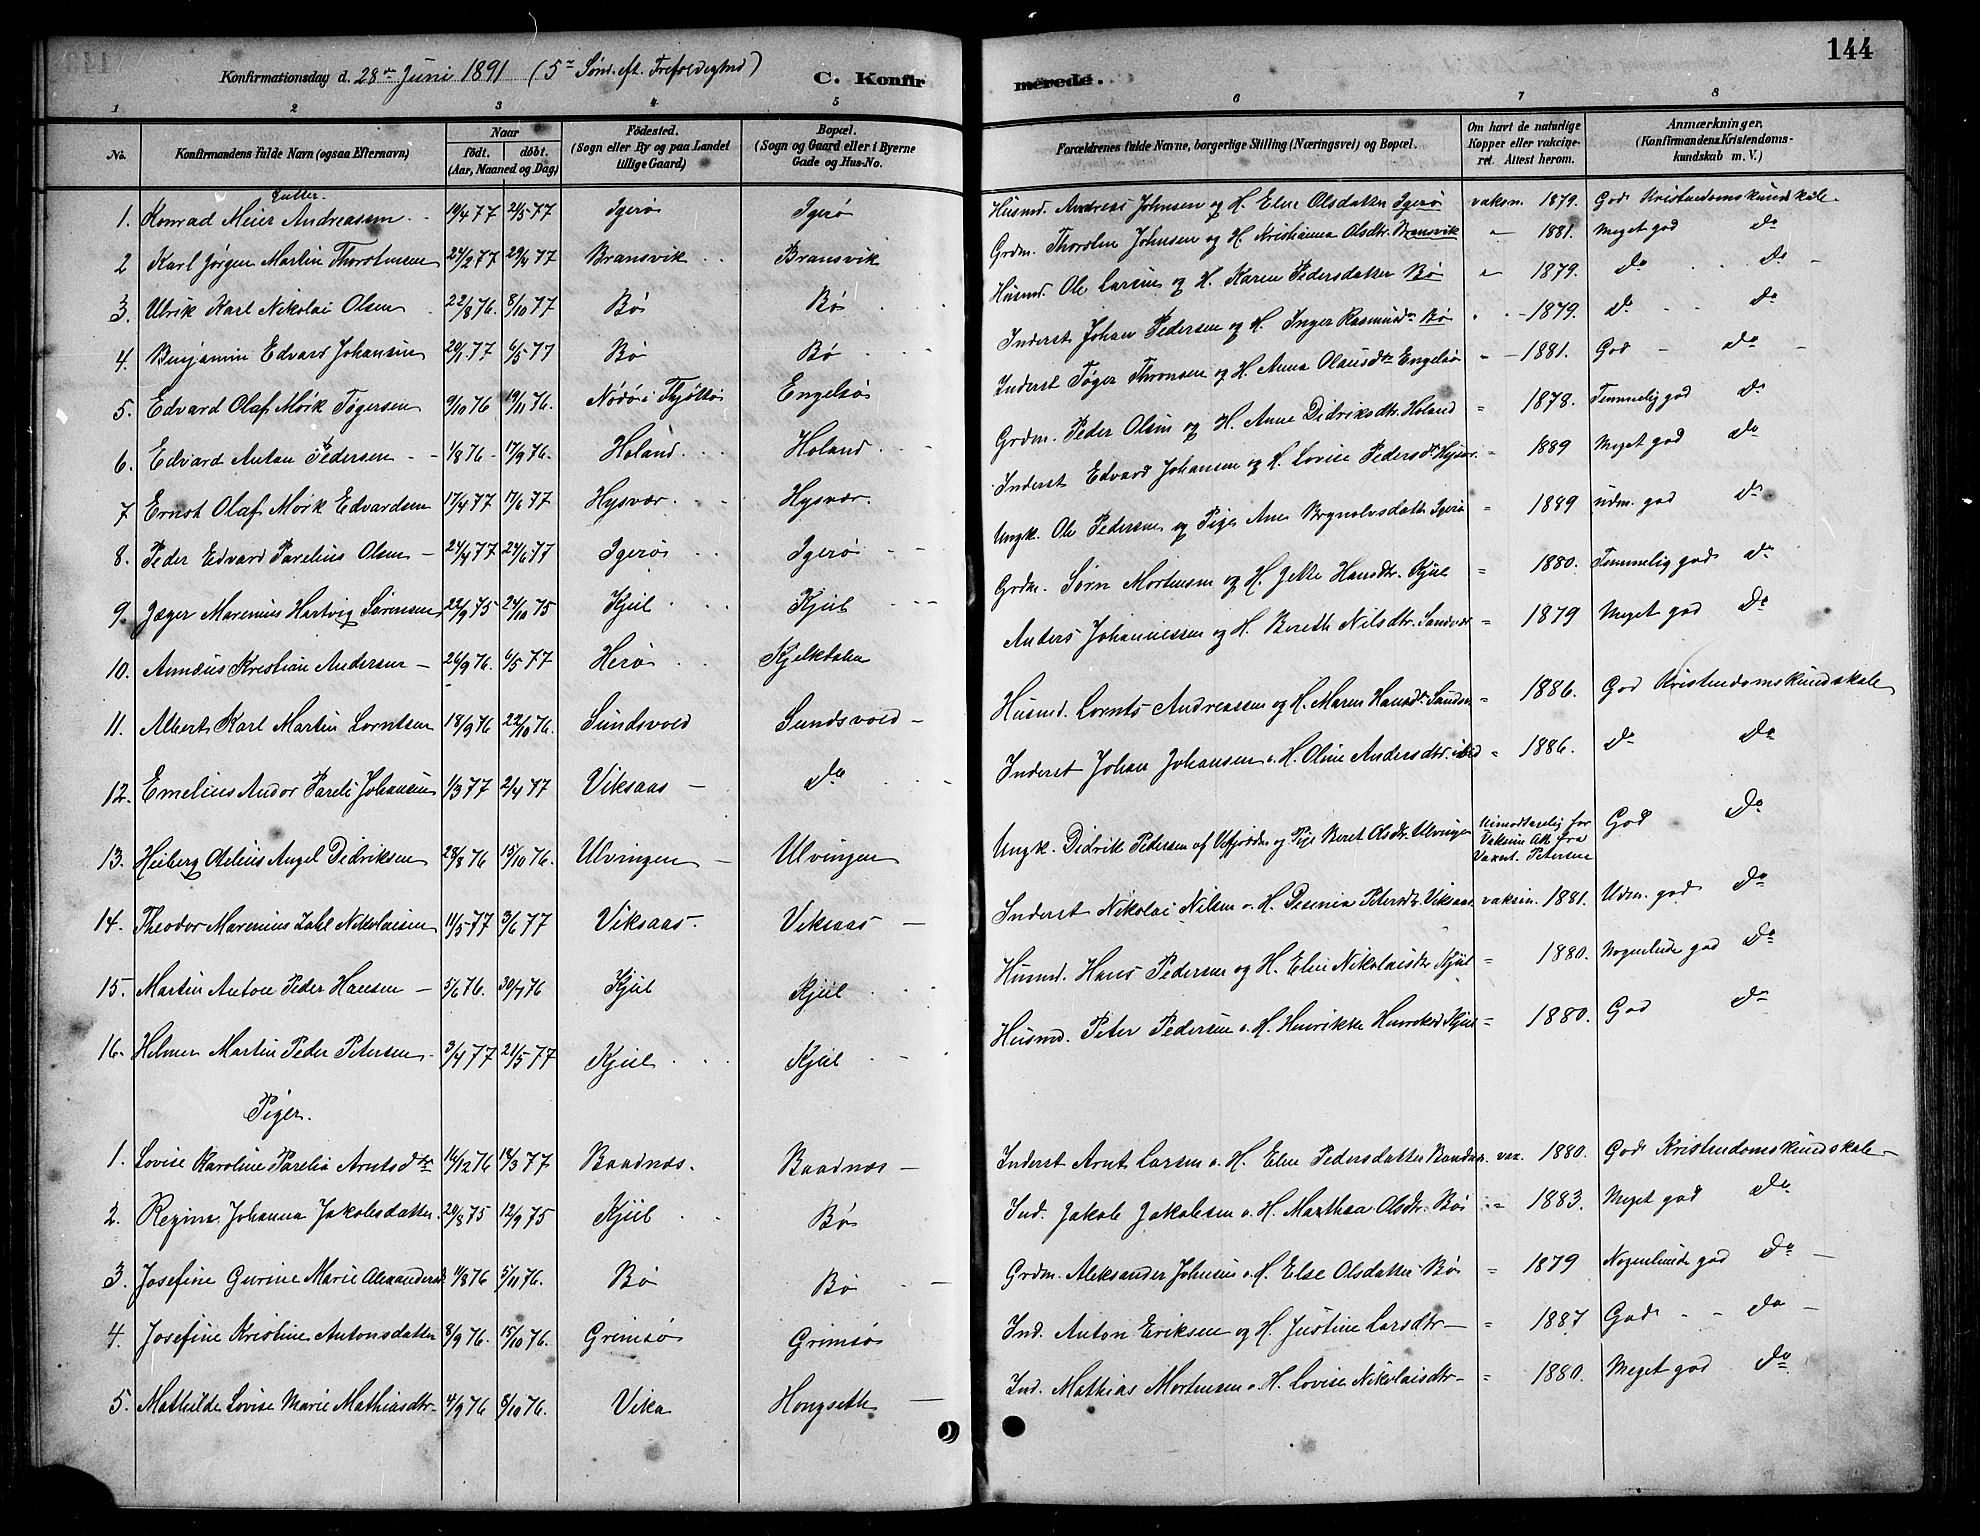 Konfirmationsdag d. 28de Juni 1891 (5te Sönd. eft. Trefoldighed)
C. Konfirmerede.
144
1 2 3 4 5 6 7 8
No.
Konfirmandens fulde Navn (ogsaa Efternavn)
Naar
født. døbt.
(Aar, Maaned og Dag)
Fødested.
(Sogn eller By og paa Landet tillige Gaard)
Bopæl.
(Sogn og Gaard eller i Byerne Gade og Hus-No.
Forældrenes fulde Navne, borgerlige Stilling (Næringsvei) og Bopæl.
Om havt de naturlige Kopper eller vakcineret. Attest herom.
Anmærkninger.
(Konfirmandens Kristendomskundskab m. V.)
Gutter.
1. Konrad Meier Andreassen 19/4 77 2/5 77 Igerö Igerö Husmd. Andreas Johnsen og H. Eline Olsdatter Igerö vaksn. 1879. God Kristendomskundskab.
2 Karl Jørgen Martin Thorstensen 24/2 77 29/4 77 Bransvik Bransvik Grdm. Thorsten Johnsen og H. Kristianna Olsdtr. Bransvik " 1881. Meget god do
3. Ulrik Karl Nikolai Olsen 22/8 76. 8/10 77 Bö Bö Husmd. Ole Larsen og H. Karen Pedersdatter Bö " 1879. do do
4. Benjamin Edvard Johansen 20/1 77 6/5 77 Bö Bö Inderst Johan Pedersen og H. Inger Rasmusdr Bö " 1879. do do
5. Edvard Olaf Mörk Tögersen 9/10 76 19/11 76. Nödö i Thjöttö Engelsö Inderst Töger Thronsen og H. Anna Olausdtr Engelsö " 1881. God do
6. Edvard Antan Pedersen 1/8 76 17/9 76. Holand Holand Grdm. Peder Olsen og H. Anne Didriksdtr. Holand " 1878. Temmelig god do
7 Ernst Olaf Mörk Edvardsen 17/4 77 17/6 77 Hysvær Hysvær. Inderst Edvard Johansen og H. Lovise Pedersdr Hysvær. " 1889 Meget god do
8. Peder Edvard Parelius Olsen 24/4 77 24/6 77 Igerö Igerö Ungk. Ole Pedersen og Pige Ane Brynolvsdatter Igerö " 1889 udm. god do
9. Jæger Marenius Hartvig Sörensen 22/9 75 24/10 75 Kjul Kjul Grdm. Sörn Mortensen og H. Jekte Hansdtr. Kjul " 1880. Temmelig god do
10. Annæus Kristian Andersen 26/9 76. 6/5 77 Herö Kjelkbalen Anders Johannessen og H. Bereth Nilsdtr. Sandvær " 1879 Meget god do
11. Albert Karl Martin Lorntsen 18/9 76 22/10 76. Sundsvold Sundsvold Husmd. Lornts Andreassen og H. Maren Hansdr Sundsv " 1886. God Kristendomskundskab
12. Emelius Andor Pareli Johansen 1/3 77 2/4 77 Viksaas do Inderst Johan Johansen o. H. Oline Andersdtr. ibid " 1886. do do
13. Heiberg Otelius Angel Didriksen 28/8 76 15/10 76. Ulvingen Ulvingen Ungk. Didrik Pedersen af Vefjorden og Pige Beret Olsdtr. Ulvingen Uimodtagelig for Vaksin Att. fra Vaxnt. Petersen God do
14. Theodor Marenius Zahl Nikolaisen 11/5 77 3/6 77 Viksaas. Viksaas Inderst Nikolai Nilsen o. H. Pesenia Petersdtr. Viksaas vaksin. 1881. Udm. god do
15. Martin Anton Peder Hansen 5/6 76. 30/7 76 Kjul Kjul Husmd. Hans Pedersen og H. Elen Nikolaisdtr Kjul " 1880. Nogenlunde god do
16. Helmer Martin Peder Petersen 3/4 77 21/5 77 Kjul Kjul Husmd. Peter Pedersen o. H. Henrikke Henriksd Kjul " 1880. God do
Piger.
1. Lovise Karoline Parelia Arntsdtr 16/12 76 18/3 77 Baadnæs. Baadnæs Inderst Arnt Larsen o. H. Eline Pedersdatter Baadnæs. vax. 1880. God Kristendomskundskab
2. Regine Johanna Jakobsdatter. 20/8 75 12/9 75 Kjul Bö Ind. Jakob Jakobsen o. H. Marthaa Olsdtr. Bö " 1883. Meget god do
3. Josefine Gurine Marie Alexandersd. 11/8 76 5/11 76. Bö Bö Grdm. Aleksander Johnsen o. H. Else Olsdatter Bö " 1879 Nogenlunde god do
4 Josefine Kristine Antonsdatter 8/9 76. 15/10 76. Grimsö Grimsö Ind. Anton Eriksen og H. Justine Larsdtr " 1887 God do
5. Mathilde Lovise Marie Mathiasdtr 4/9 76 8/10 76. Vika Hongseth Ind. Mathias Mortensen o. H. Lovise Nikolaisdtr " 1880. Meget god do